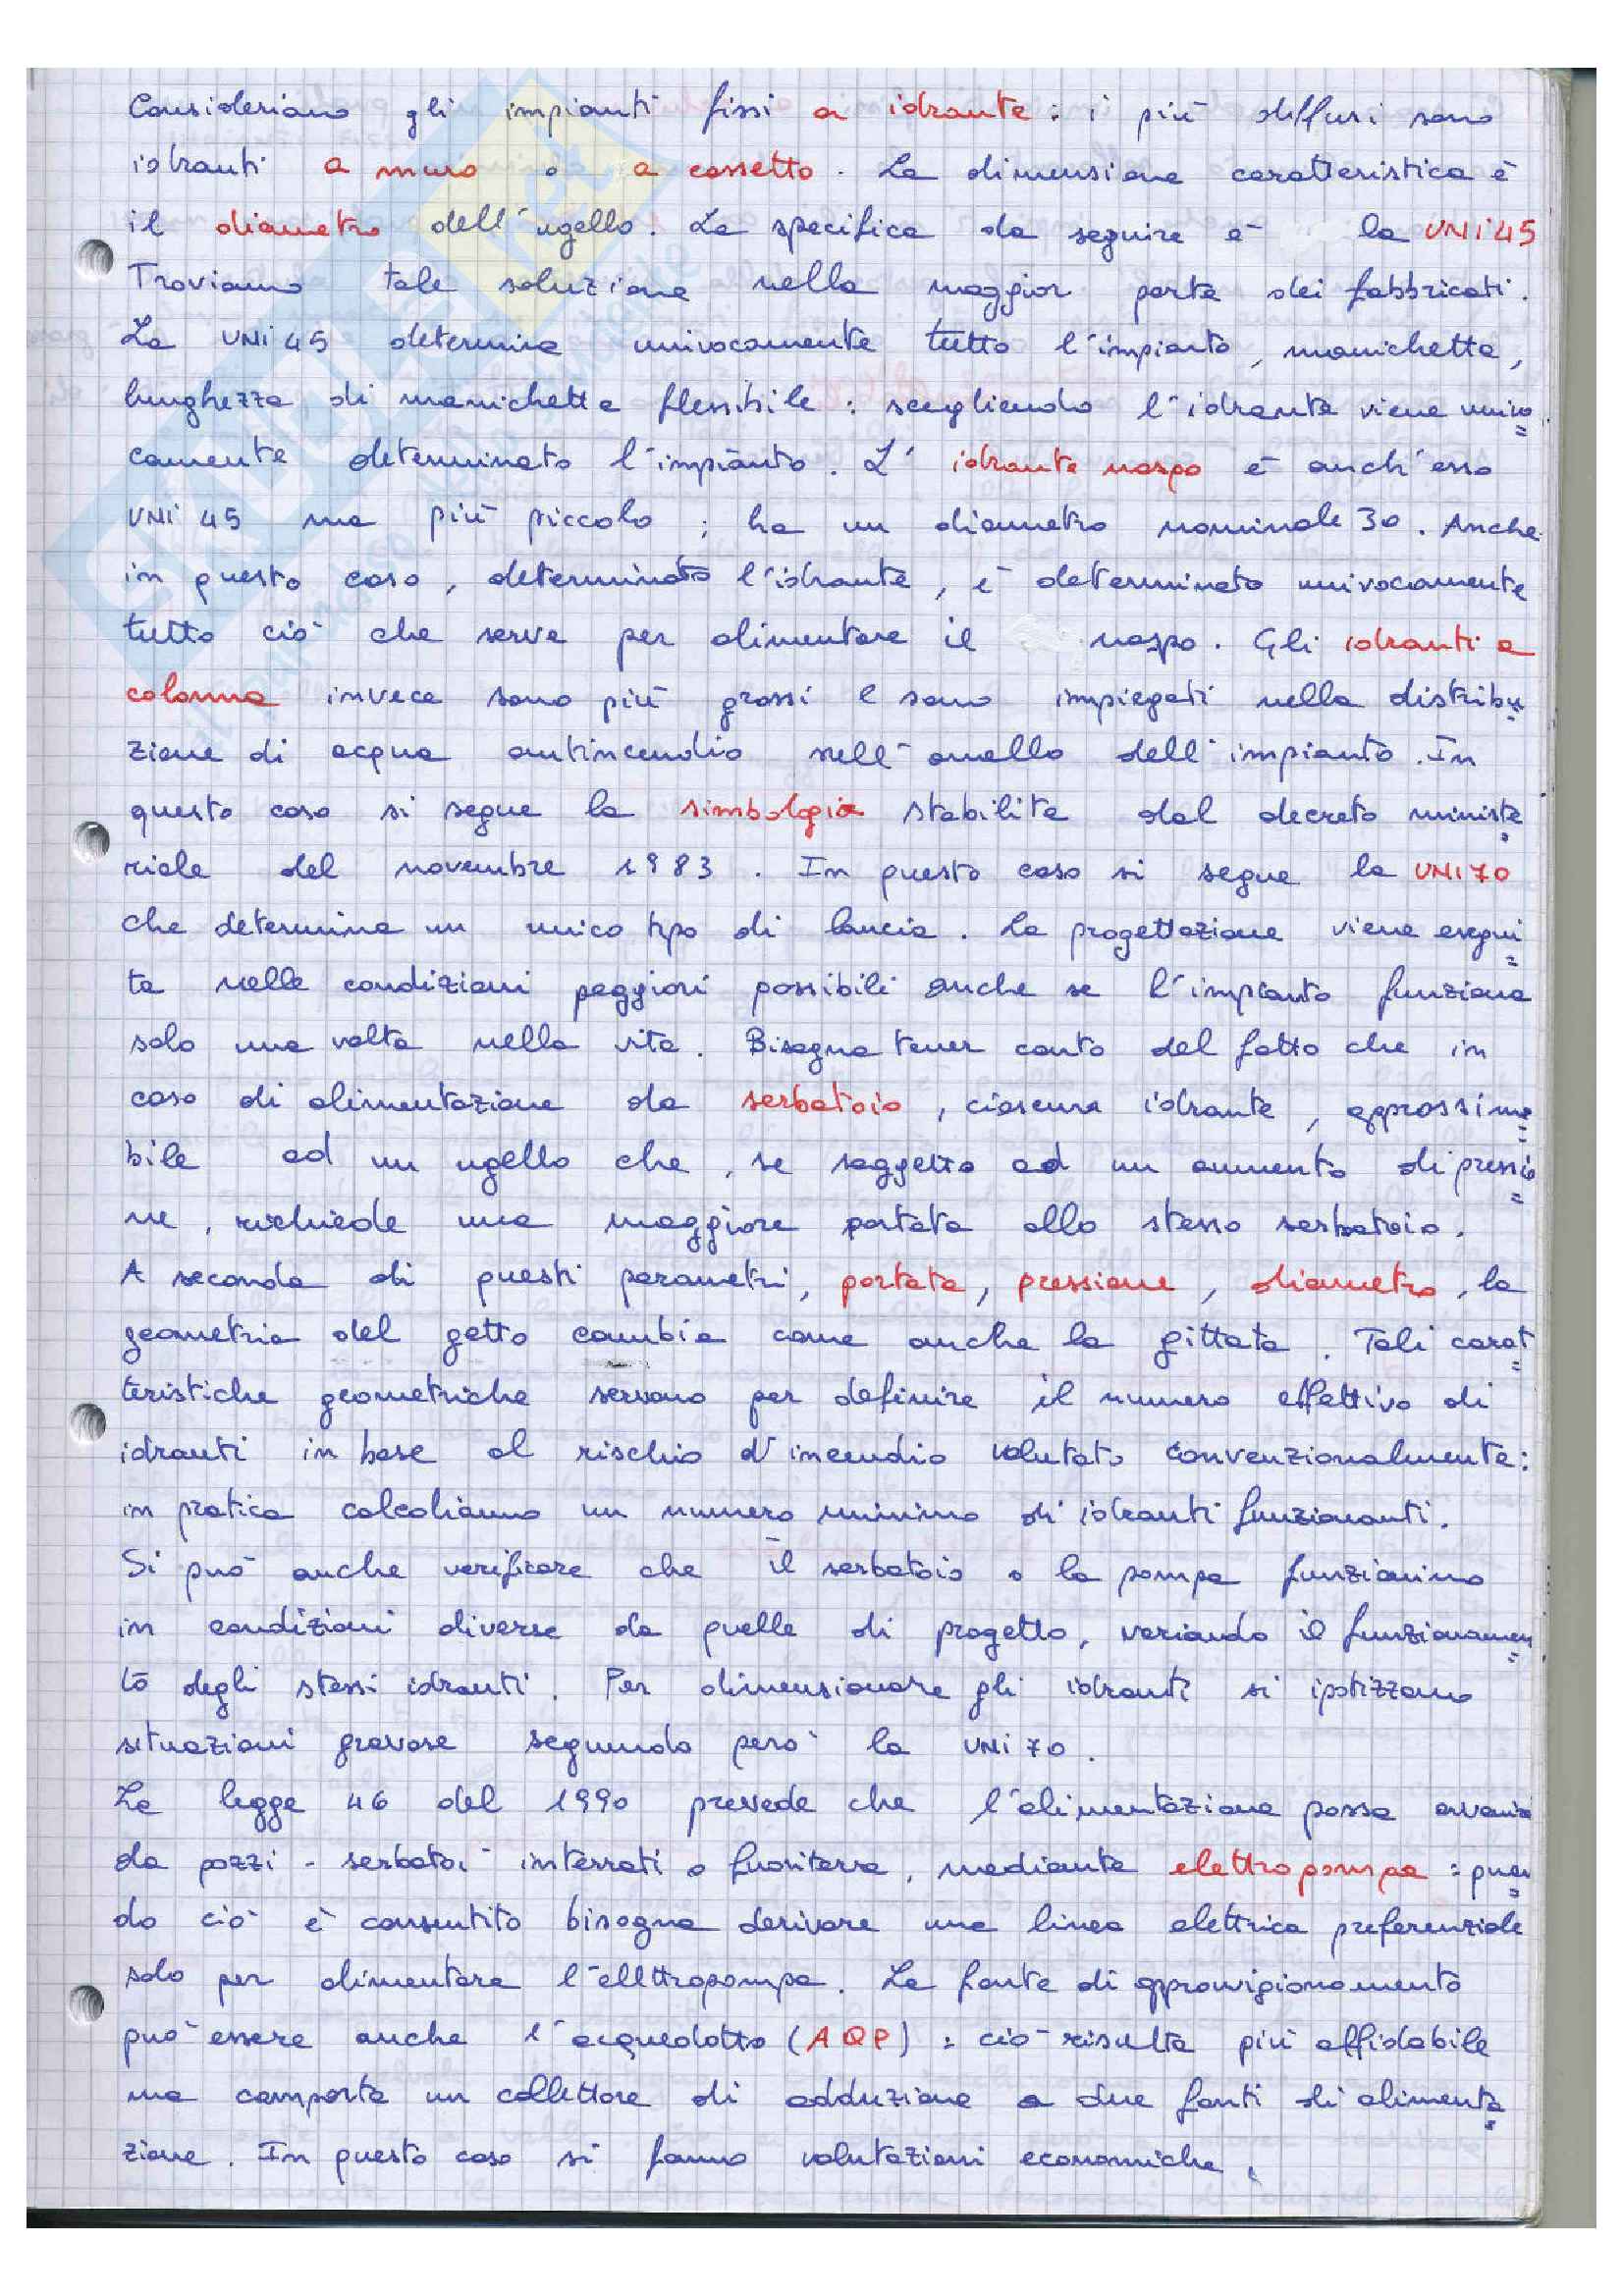 Consideriamo gli impianti fissi a idrante : i più diffusi sono
idranti a muro o a cassetto. La dimensione caratteristica è
il diametro dell'ugello. La specifica da seguire è la UNI 45
Troviamo tale soluzione nella maggior parte dei fabbricati.
La UNI 45 determina univocamente tutto l'impianto, manichetta,
lunghezza di manichetta flessibile : scegliendo l'idrante viene univo
camente determinato l'impianto. L'idrante naspo è anch'esso
UNI 45 ma più piccolo ; ha un diametro nominale 30. Anche
in questo caso, determinato l'idrante, è determinato univocamente
tutto ciò che serve per alimentare il naspo. Gli idranti a
colonna invece sono più grossi e sono impiegati nella distribu
zione di acqua antincendio nell'anello dell'impianto. In
questo caso si segue la simbologia stabilita dal decreto ministe
riale del novembre 1983. In questo caso si segue la UNI 70
che determina un unico tipo di lancia. La progettazione viene esegui
ta nelle condizioni peggiori possibili anche se l'impianto funziona
solo una volta nella vita. Bisogna tener conto del fatto che in
caso di alimentazione da serbatoio, ciascun idrante, approssima
bile ad un ugello che, se soggetto ad un aumento di pressio
ne, richiede una maggiore portata allo stesso serbatoio.
A seconda di questi parametri, portata, pressione, diametro, la
geometria del getto cambia come anche la gittata. Tali carat
teristiche geometriche servono per definire il numero effettivo di
idranti in base al rischio d'incendio valutato convenzionalmente:
in pratica calcoliamo un numero minimo di idranti funzionanti.
Si può anche verificare che il serbatoio o la pompa funzionino
in condizioni diverse da quelle di progetto, variando il funzionamen
to degli stessi idranti. Per dimensionare gli idranti si ipotizzano
situazioni gravose seguendo però la UNI 70.
La legge 46 del 1990 prevede che l'alimentazione possa avvenire
da pozzi - serbatoi interrati o fuoriterra, mediante elettropompa : quan
do ciò è consentito bisogna derivare una linea elettrica preferenziale
solo per alimentare l'ellttropompa. La fonte di approvvigionamento
può essere anche l'acquedotto (AQP) : ciò risulta più affidabile
ma comporta un collettore di adduzione a due fonti di alimenta
zione. In questo caso si fanno valutazioni economiche.